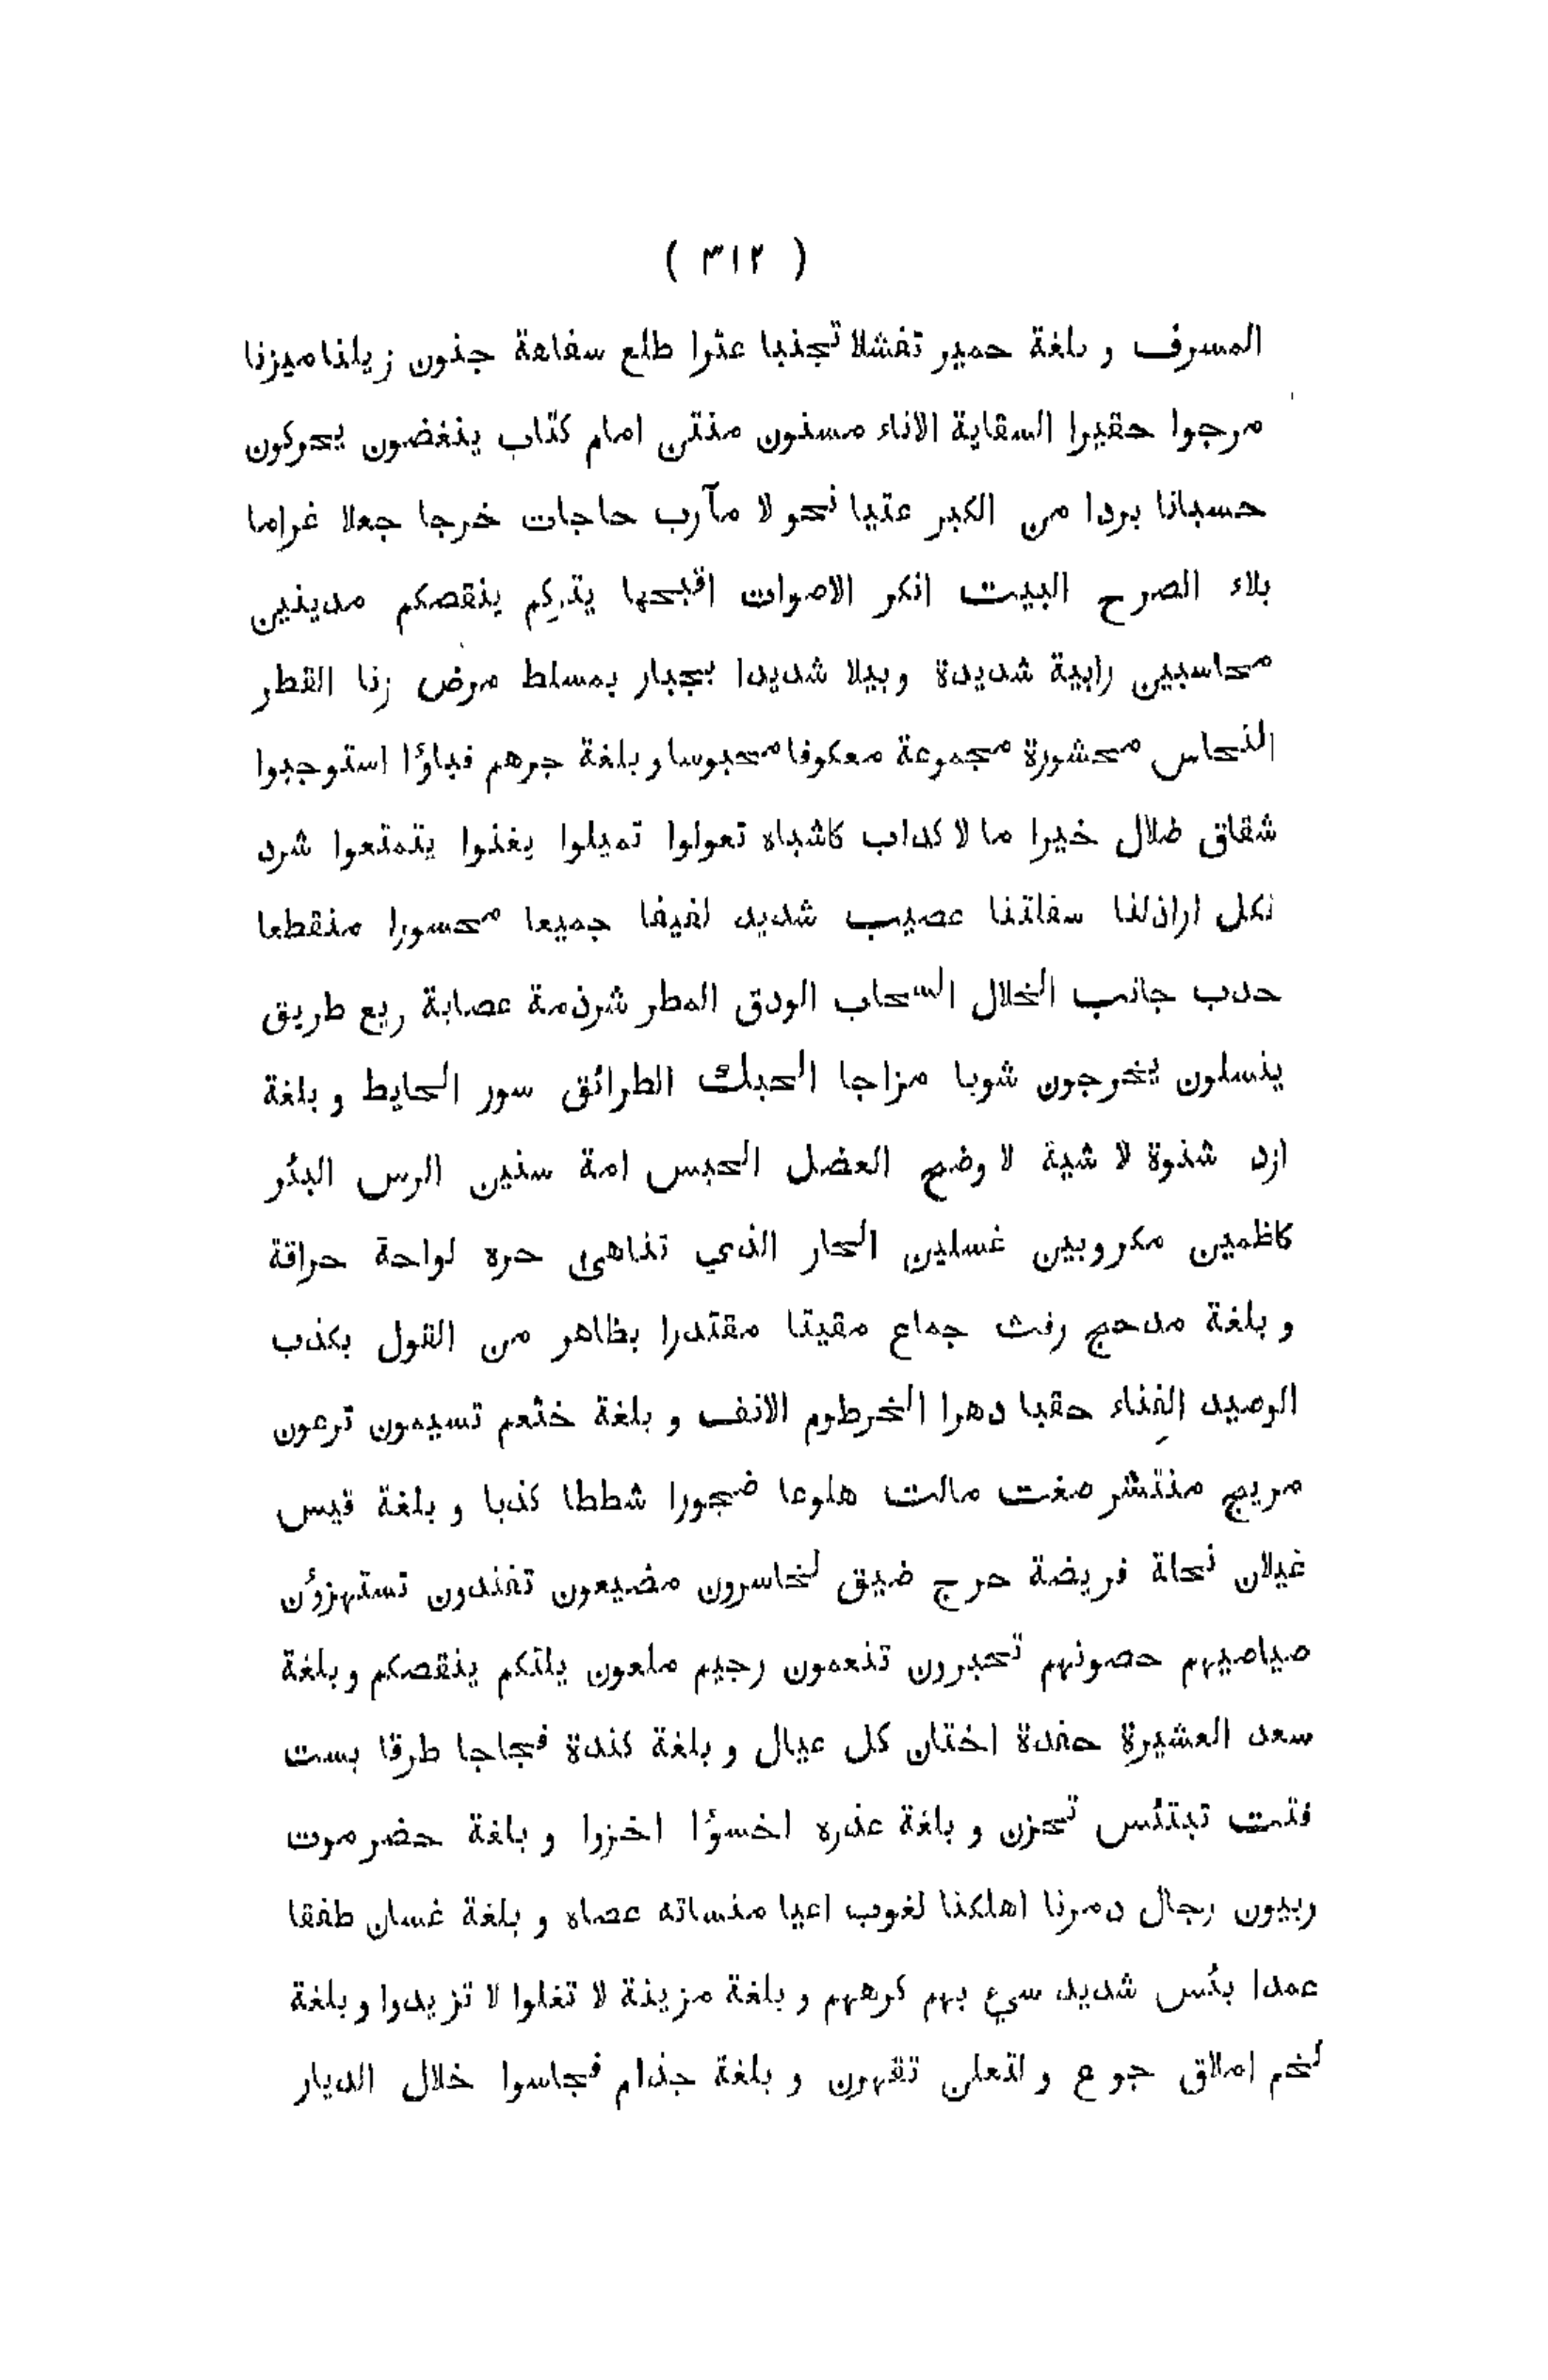 ( ٣١٢ )
المسرف و بلغة حمير تفشلا تجنبا عثرا طلع سفاهة جنون زيلنا ميزنا
مرجوا حقيرا السقاية الاناء مسنون منتن امام كتاب ينغضون يحركون
حسبانا بردا من الكبر عتيا نحو لا مآرب حاجات خرجا جعلا غراما
بلاء الصرح البيت انكر الاصوات اقبحها يتركم ينقصكم مدينين
محاسبين رابية شديدة وبيلا شديدا بجبار بمسلط مرض زنا القطر
النحاس محشورة مجموعة معكوفا محبوسا و بلغة جرهم فباؤا استوجبوا
شقاق ضلال خيرا ما لا كداب كاشباه تعولوا تميلوا يغنوا يتمتعوا شرد
نكل اراذلنا سفلتنا عصيب شديد لفيفا جميعا محسورا منقطعا
حدب جانب الخلال السحاب الودق المطر شرذمة عصابة ريع طريق
ينسلون يخرجون شوبا مزاجا الحبك الطرائق سور الحايط و بلغة
ازد شذوة لا شية لا وضح العضل الحبس امة سنين الرس البئر
كاظمين مكروبين غسلين الحار الذي تناهى حره لواحة حراقة
و بلغة مدحج رفث جماع مقيتا مقتدرا بظاهر من القول بكذب
الوصيد الفِناء حقبا دهرا الخرطوم الانف و بلغة خثعم تسيمون ترعون
مريج منتشر صغت مالت هلوعا ضجورا شططا كذبا و بلغة قيس
غيلان نحلة فريضة حرج ضيق لخاسرون مضيعون تفندون تستهزؤن
صياصيهم حصونهم تحبرون تنعمون رجيم ملعون يلتكم ينقصكم و بلغة
سعد العشيرة حفدة اختان كل عيال و بلغة كندة فجاجا طرقا بست
فتت تبتئس تحزن و بلغة عذره اخسؤا اخزوا و بلغة حضرموت
ربيون رجال دمرنا اهلكنا لغوب اعيا منساته عصاه و بلغة غسان طفقا
عمدا بئس شديد سيء بهم كرههم و بلغة مزينة لا تغلوا لا تزيدوا و بلغة
لخم املاق جوع و لتعلن تقهرن و بلغة جذام فجاسوا خلال الديار